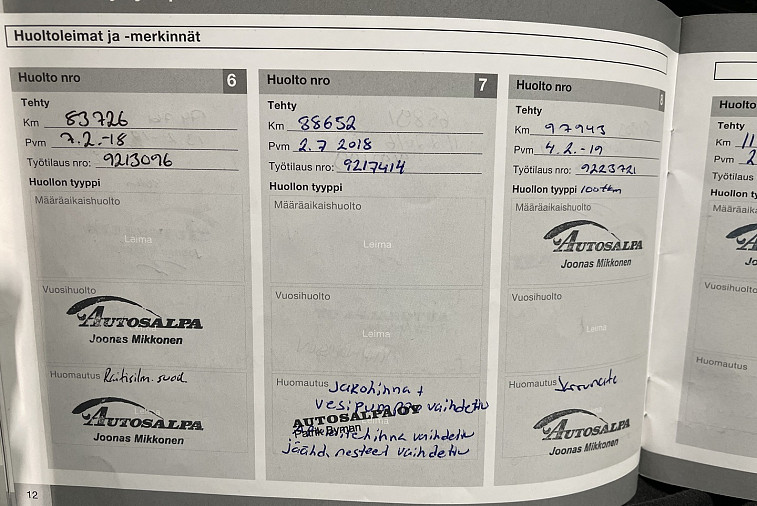 Huoltoleimat ja -merkinnät
Huolto nro 6
Tehty
Km 83726
Pvm 7.2.-18
Työtilaus nro: 9213096
Huollon tyyppi
Määräaikaishuolto
Leima
Vuosihuolto
AUTOSALPA
Joonas Mikkonen
Huomautus Raitisilm. suod.
Leima
AUTOSALPA
Joonas Mikkonen
12
Huolto nro 7
Tehty
Km 88652
Pvm 2.7 2018
Työtilaus nro: 9217414
Huollon tyyppi
Määräaikaishuolto
Leima
Vuosihuolto
Leima
Huomautus Jakohihna +
vesipumppu vaihdettu
AUTOSALPA OY
Patrik Byman
hihna vaihdettu
jäähd. nesteet vaihdettu
Huolto nro 8
Tehty
Km 97943
Pvm 4.2.-19
Työtilaus nro: 9223721
Huollon tyyppi 100tkm
Määräaikaishuolto
AUTOSALPA
Joonas Mikkonen
Vuosihuolto
Leima
Huomautus
AUTOSALPA
Joonas Mikkonen
Huolto
Tehty
Km 11
Pvm 2
Työtilaus
Huollon
Vuosihuolto
Huomautus